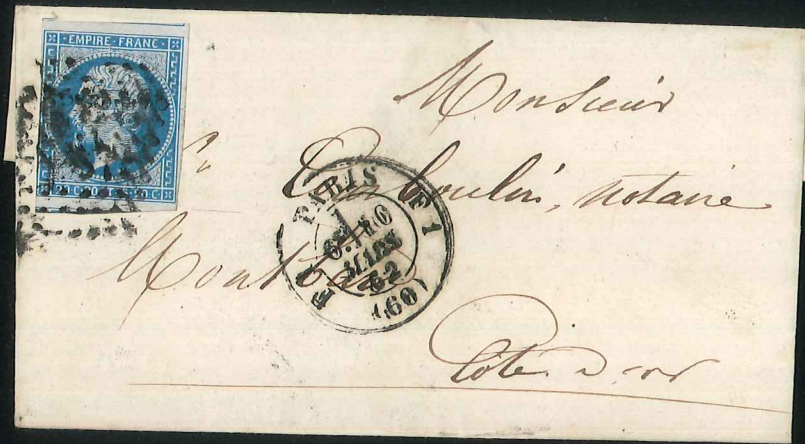 EMPIRE FRANC
20 C 20 C
Monsieur
notaire
Montbard
Côte d'or
PARIS
F 1
MARS
62
(60)